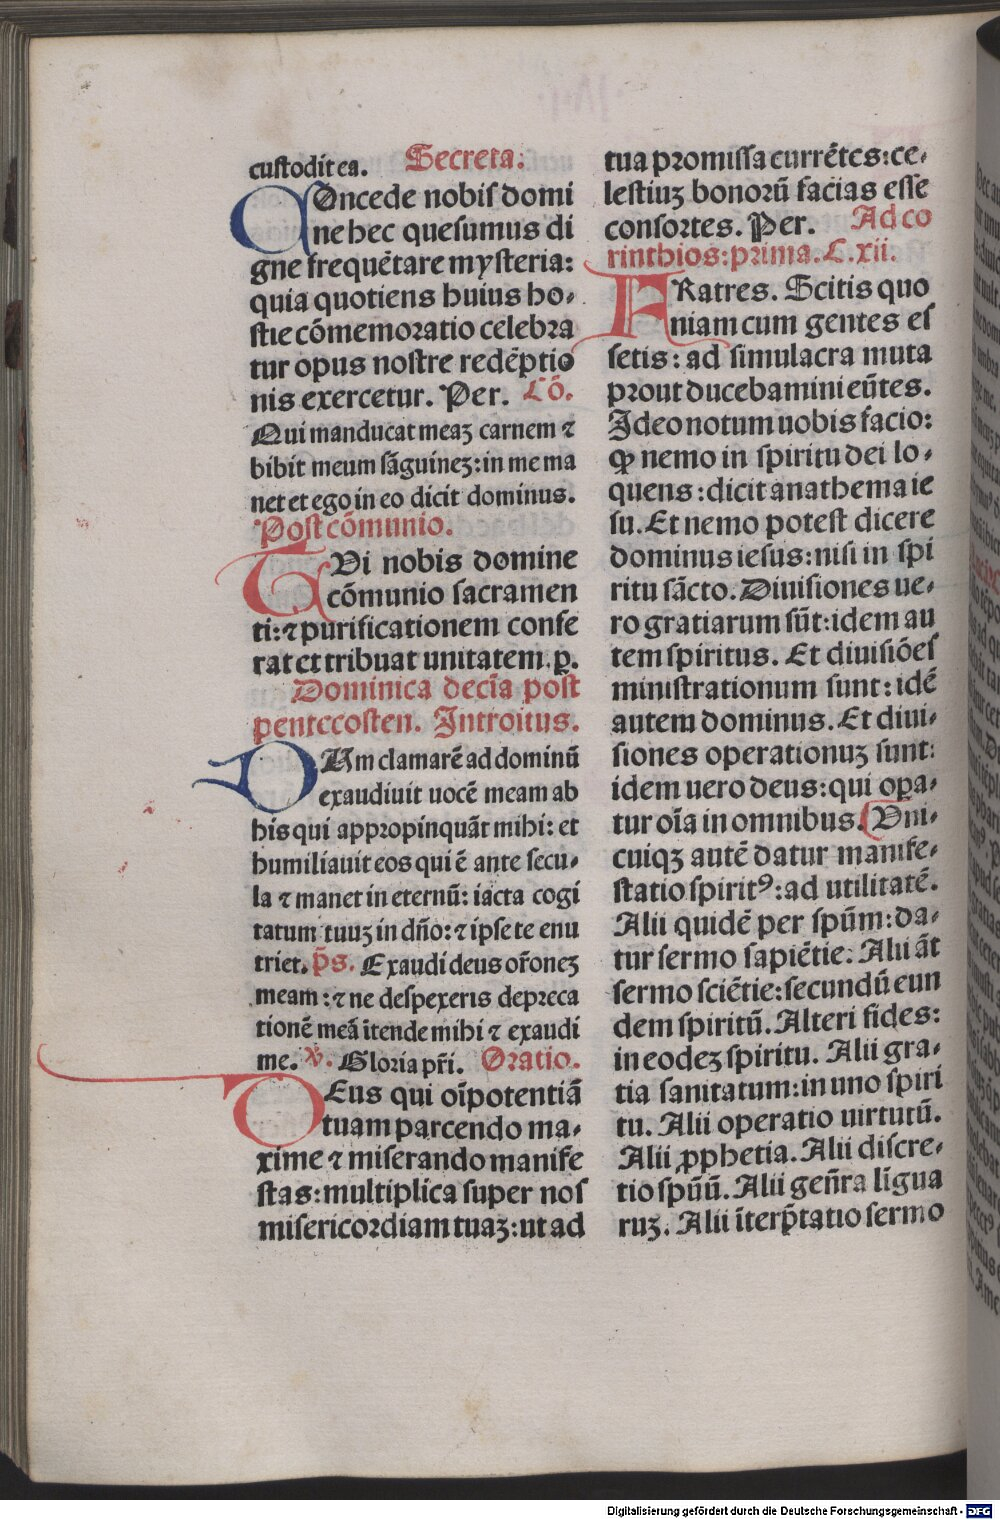 custodit ea. Secreta.
COncede nobis domi
ne hec quesumus di
gne frequẽtare mysteria:
quia quotiens huius ho-
stie cõmemoratio celebra
tur opus nostre redẽptio
nis exercetur. Per. Cõ.
Qui manducat meaꝫ carnem ⁊
bibit meum sãguineꝫ: in me ma
net et ego in eo dicit dominus.
Post cõmunio.
TVi nobis domine
cõmunio sacramen
ti: ⁊ purificationem confe
rat et tribuat unitatem. ꝑ.
Dominica deciã post
pentecosten. Introitus.
DUm clamarẽ ad dominũ
exaudiuit uocẽ meam ab
his qui appropinquãt mihi: et
humiliauit eos qui ẽ ante secu-
la ⁊ manet in eternũ: iacta cogi
tatum tuuꝫ in dño: ⁊ ipse te enu
triet. p̃s. Exaudi deus or̃oneꝫ
meam: ⁊ ne despexeris depreca
tionẽ meã ĩtende mihi ⁊ exaudi
me. ꝟ. Gloria pr̃i. Oratio.
DEus qui oĩpotentiã
tuam parcendo ma-
xime ⁊ miserando manife
stas: multiplica super nos
misericordiam tuaꝫ: ut ad
tua promissa currẽtes: ce-
lestiuꝫ bonorũ facias esse
consortes. Per. Ad co
rinthios: prima. C. xii.
FRatres. Scitis quo
niam cum gentes es
setis: ad simulacra muta
prout ducebamini eũtes.
Ideo notum uobis facio:
ꝙ nemo in spiritu dei lo-
quens: dicit anathema ie
su. Et nemo potest dicere
dominus iesus: nisi in spi
ritu sãcto. Diuisiones ue-
ro gratiarum sũt: idem au
tem spiritus. Et diuisiões
ministrationum sunt: idẽ
autem dominus. Et diui-
siones operationuꝫ sunt:
idem uero deus: qui oꝑa-
tur oĩa in omnibus. Vni-
cuiqꝫ autẽ datur manife-
statio spiritꝰ: ad utilitatẽ.
Alii quidẽ per spũm: da-
tur sermo sapiẽtie: Alii ãt
sermo sciẽtie: secundũ eun
dem spiritũ. Alteri fides:
in eodeꝫ spiritu. Alii gra-
tia sanitatum: in uno spiri
tu. Alii operatio uirtutũ.
Alii ꝓphetia. Alii discre-
tio spũũ. Alii geñra lĩgua
ruꝫ. Alii ĩterp̃tatio sermo
Digitalisierung gefördert durch die Deutsche Forschungsgemeinschaft - DFG